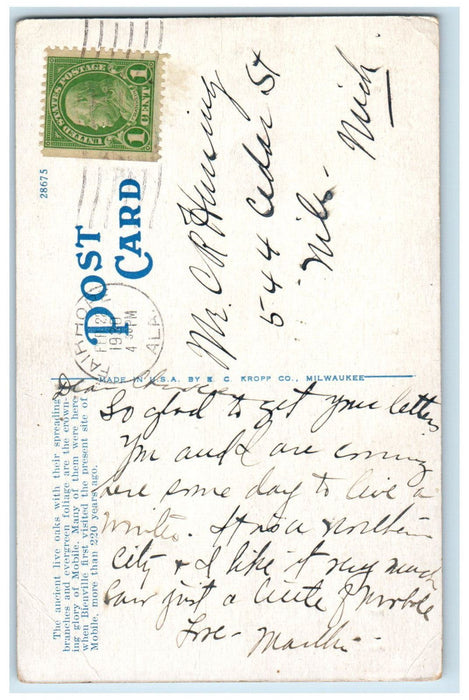 UNITED STATES POSTAGE
1 CENT 1
28675
POST
CARD
FAIRHOPE
FEB
4 PM
ALA.
Mr. C R Huning
544 Cedar St
Niles - Mich.
MADE IN U.S.A. BY E. C. KROPP CO., MILWAUKEE
The ancient live oaks with their spreading
branches and evergreen foliage are the crown-
ing glory of Mobile. Many of them were here
when Bienville first visited the present site of
Mobile, more than 220 years ago.
Dear
So glad to get your letter.
You and I are coming
here some day to live a
winter. It is a northern
City & I like it very much
Saw just a little of Mobile
Love -